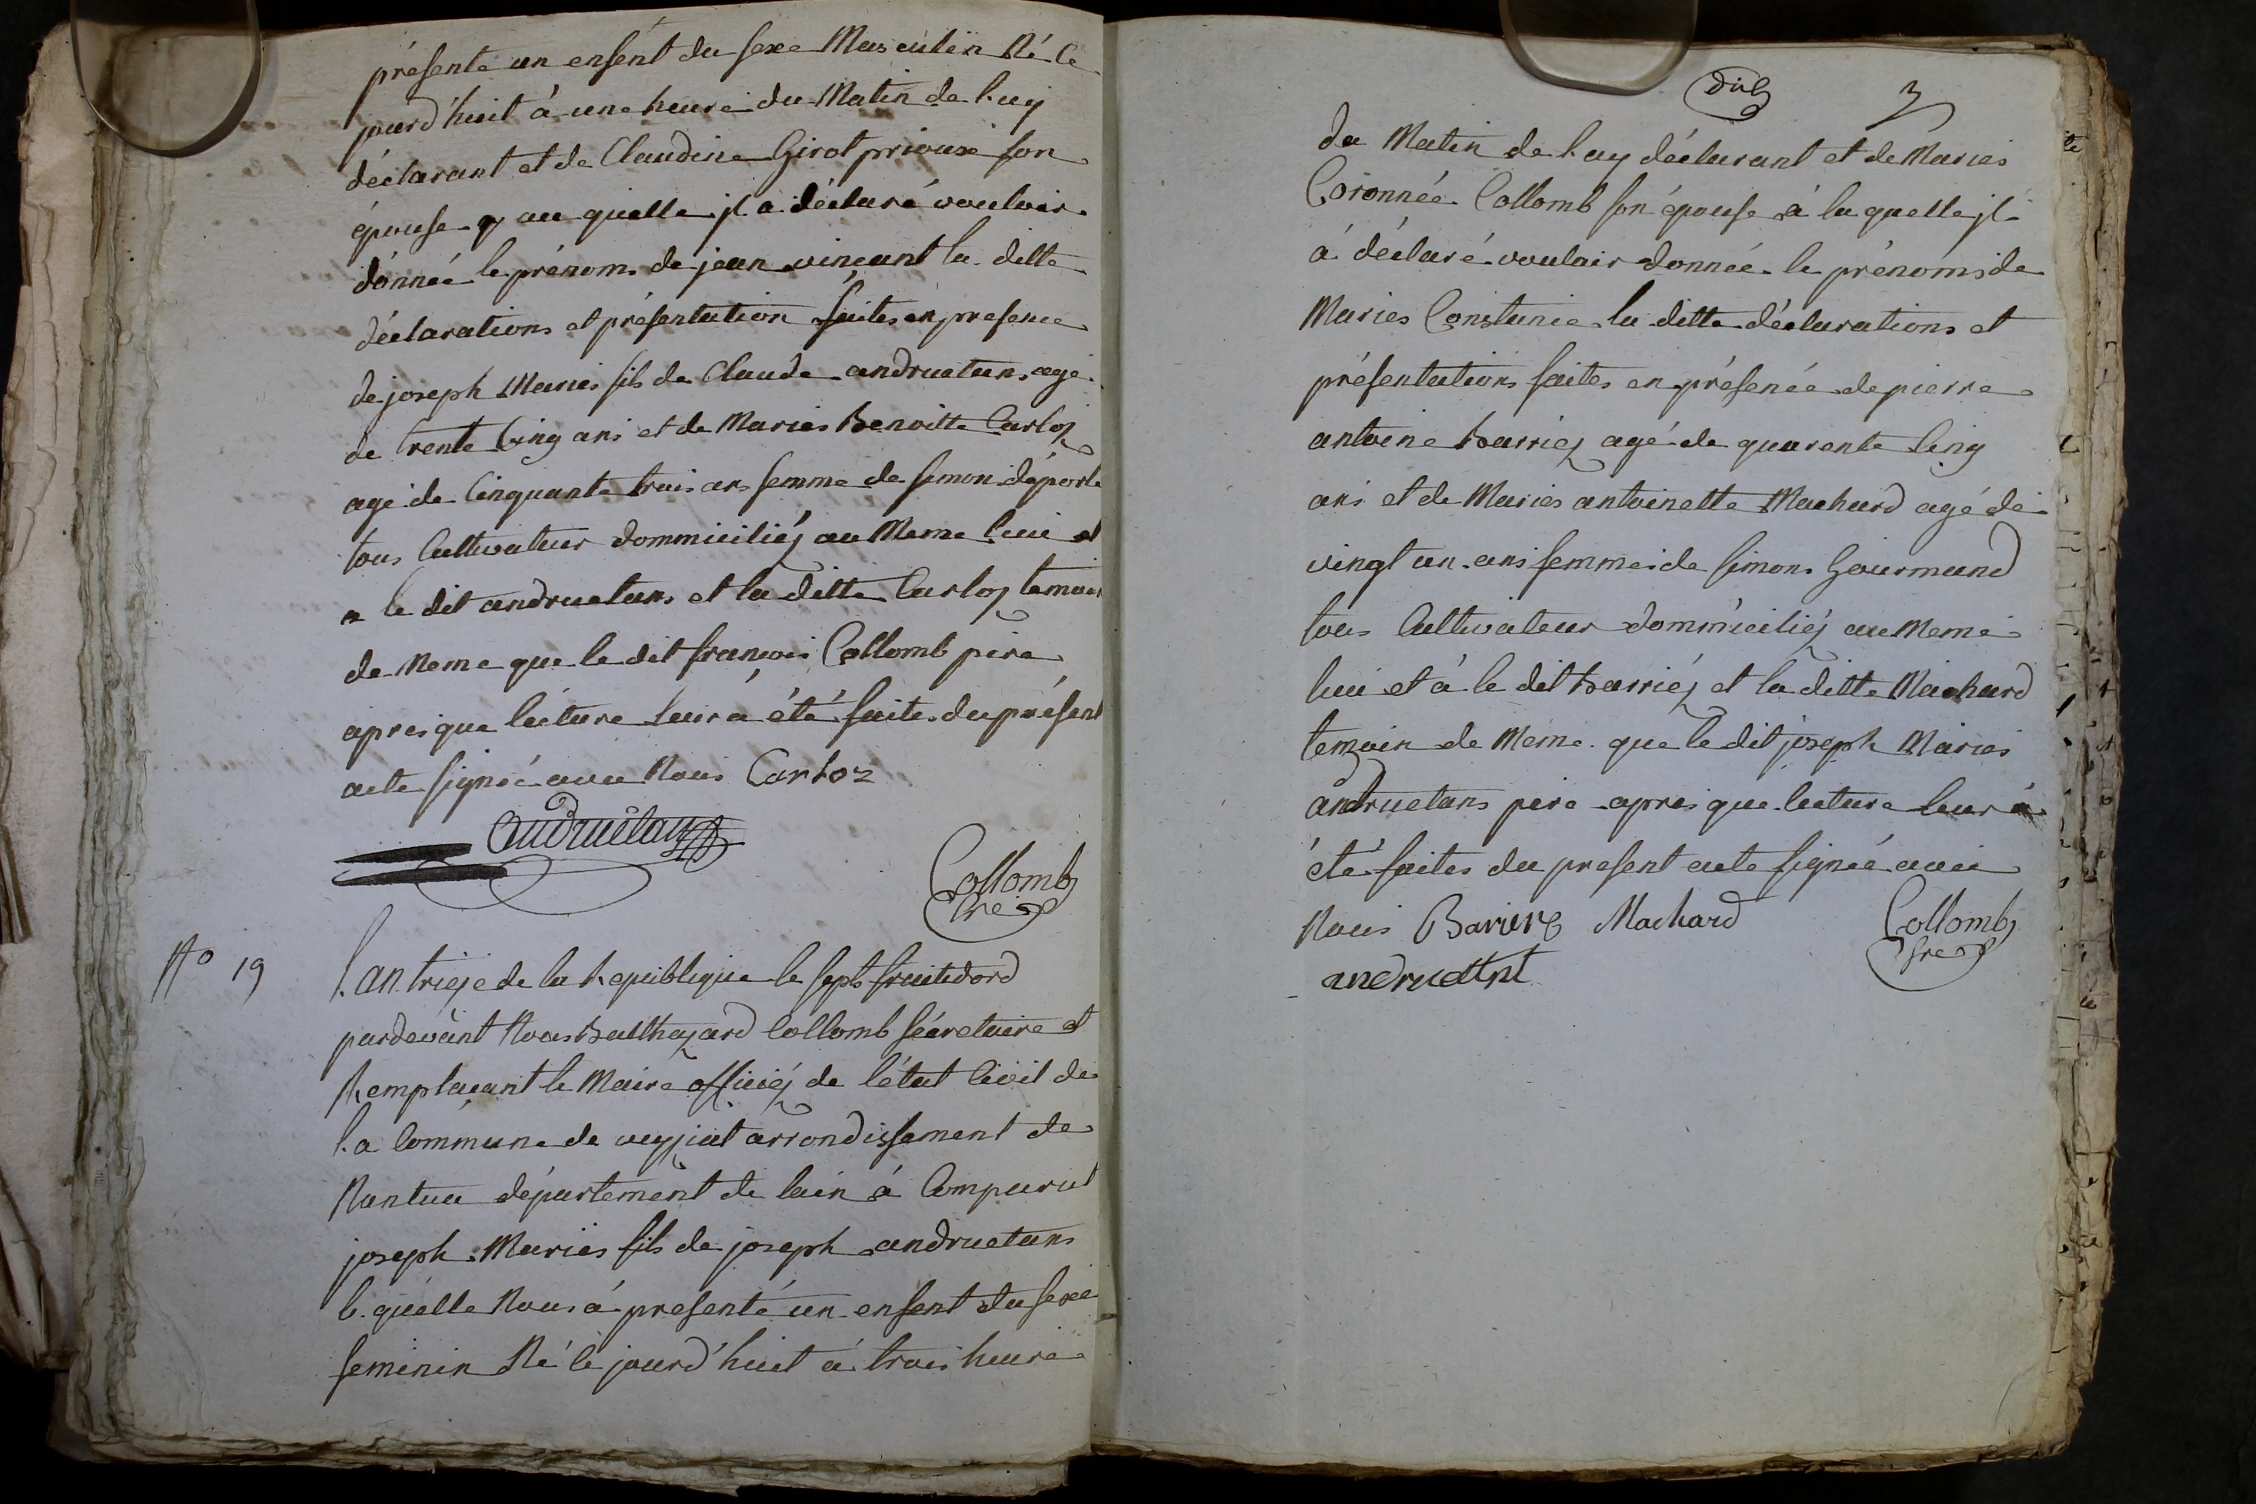 présente un enfent du sexe Masculin Né le
jourd'huit à une heure du Matin de luy
déclarant et de Claudine Girot prioux son
épouse au quelle jl a déclaré vouloir
donnée le prénoms de jean vinçant la ditte
déclarations et présentution faites en presence
de joseph Maries fils de Claude andruetans agé
de trente Cinq ans et de Maries Benoitte Carloz
agé de Cinquante trois ans femme de simon déporte
tous Cultivateur dommiciliéz au Meme lieu et
a le dit andruetans et la ditte Carloz temoin
de Meme que le dit françois Collomb père
après que lecture leur à été faites du présent
acte signée avec Nous Carloz
Andruétan
Collomb
sre
No 19
l'an trieze de la Republique le sept fruitidord
pardevant Nous Balthazard Collomb sécretaire et
Remplaçant le Maire officiéz de l'état Civil de
la Commune de veyziat arrondissement de
Nantua département de lain à Comparut
joseph Maries fils de joseph andruetans
lequelle Nous à presenté un enfent du sexe
feminin Né le jourd'huit à trois heure
dix
du Matin de luy déclarant et de Maries
Coronnée Collomb son épouse à la quelle jl
à déclaré vouloir donnée le prénoms de
Maries Constance la ditte déclarations et
présentutions faites en présence de pierre
antoine Barriez agé de quarente Cinq
ans et de Maries antoinette Machard agé de
vingt un ans femme de simons Gourmand
tous Cultivateur dommiciliéz au Meme
lieu et à le dit Barriéz et la ditte Machard
temoin de Meme que le dit joseph Maries
andruetans père apres que lecture leur à
été faites du present acte signée avec
Nous Barirez Machard
Collomb
sre
andruettnt